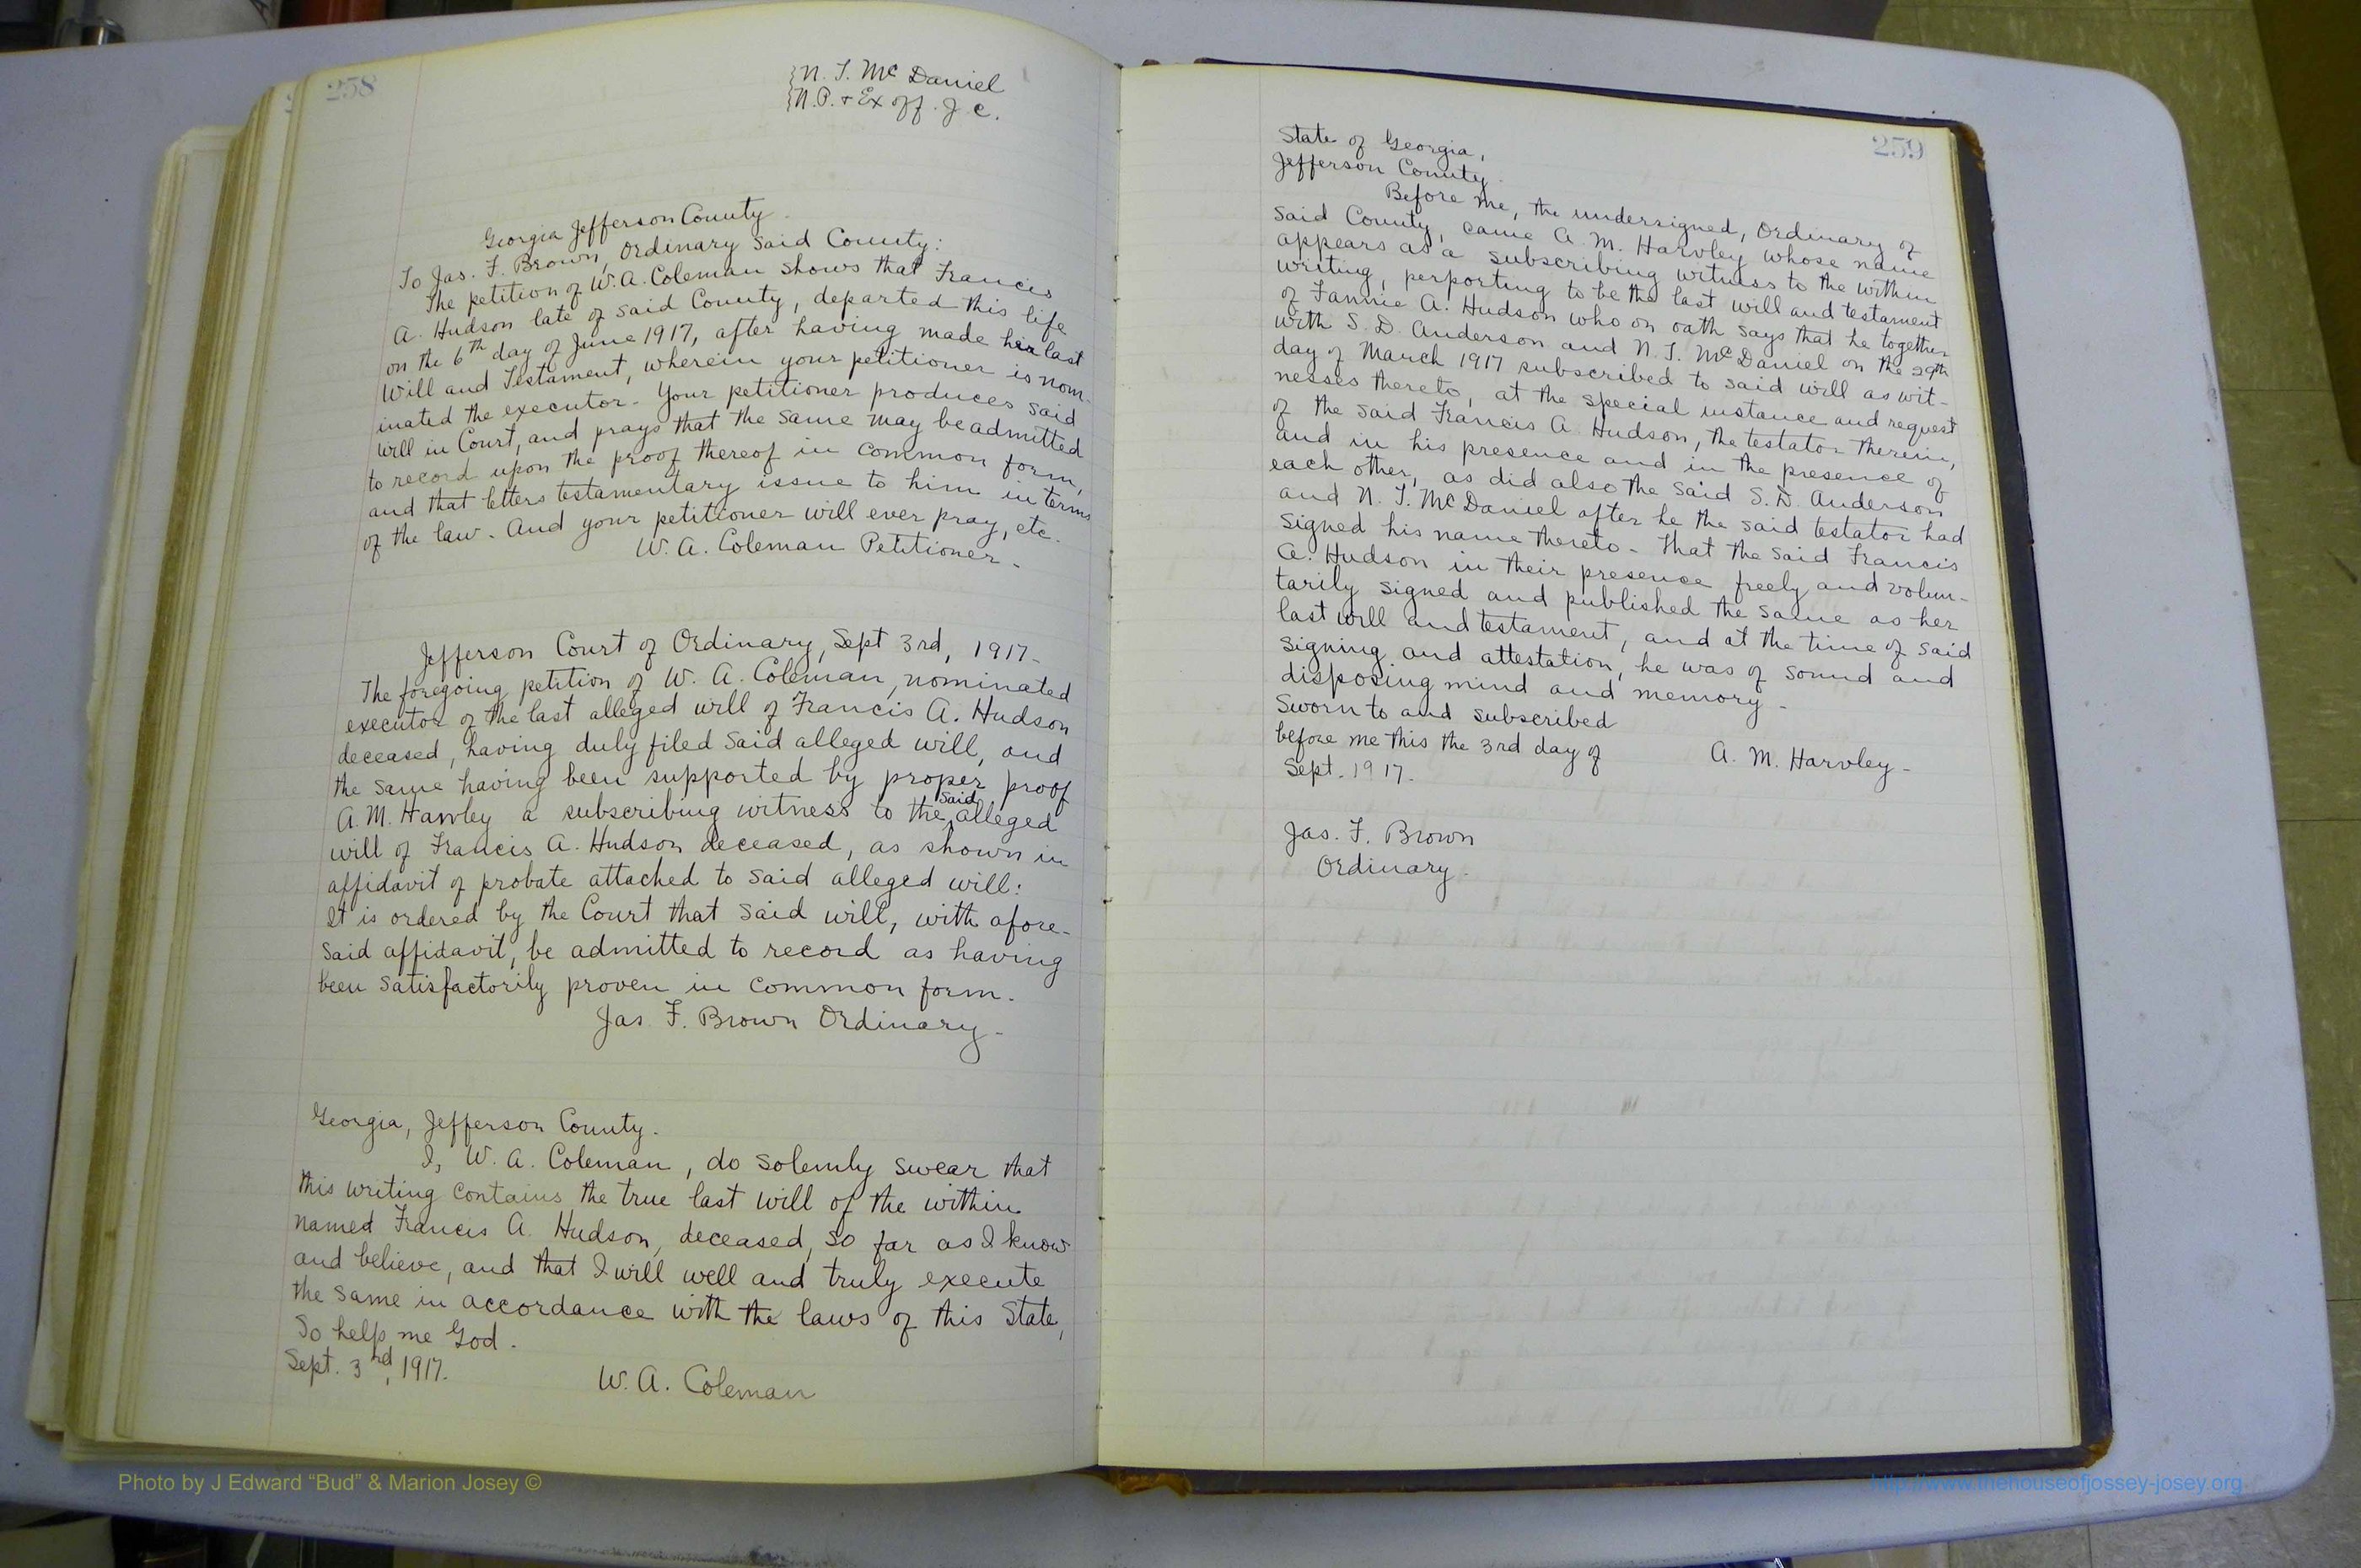 258
N. J. McDaniel
N.P. + Ex off. J. C.
Georgia Jefferson County.
To Jas. F. Brown, Ordinary Said County:
The petition of W. A. Coleman shows that Francis
A. Hudson late of said County, departed this life
on the 6th day of June 1917, after having made her last
Will and Testament, wherein your petitioner is nom-
inated the executor - Your petitioner produces said
will in Court, and prays that the same may be admitted
to record upon the proof thereof in common form,
and that letters testamentary issue to him in terms
of the law. And your petitioner will ever pray, etc.
W. A. Coleman Petitioner.
Jefferson Court of Ordinary, Sept 3rd, 1917-
The foregoing petition of W. A. Coleman, nominated
executor of the last alleged will of Francis A. Hudson
deceased, having duly filed said alleged will, and
the same having been supported by proper proof
A. M. Harvley a subscribing witness to the said alleged
will of Francis A. Hudson deceased, as shown in
affidavit of probate attached to said alleged will:
It is ordered by the Court that said will, with afore-
said affidavit, be admitted to record as having
been satisfactorily proven in common form.
Jas. F. Brown Ordinary-
Georgia, Jefferson County.
I, W. A. Coleman, do solemly swear that
this writing contains the true last will of the within
named Francis A. Hudson, deceased, so far as I know
and believe, and that I will well and truly execute
the same in accordance with the laws of this State,
So help me God.
Sept. 3rd, 1917.
W. A. Coleman
259
State of Georgia,
Jefferson County.
Before me, the undersigned, Ordinary of
said County, came A. M. Harvley whose name
appears as a subscribing witness to the within
writing, perporting to be the last will and testament
of Fannie A. Hudson who on oath says that he together
with S. D. Anderson and N. J. McDaniel on the 29th
day of March 1917 subscribed to said will as wit-
nesses thereto, at the special instance and request
of the said Francis A. Hudson, the testator therein,
and in his presence and in the presence of
each other, as did also the said S. D. Anderson
and N. J. McDaniel after he the said testator had
signed his name thereto - That the said Francis
A. Hudson in their presence freely and volun-
tarily signed and published the same as her
last will and testament, and at the time of said
signing and attestation, he was of sound and
disposing mind and memory -
Sworn to and subscribed
before me this the 3rd day of
Sept. 1917.
A. M. Harvley-
Jas. F. Brown
Ordinary.
Photo by J Edward “Bud” & Marion Josey ©
http://www.thehouseofjossey-josey.org